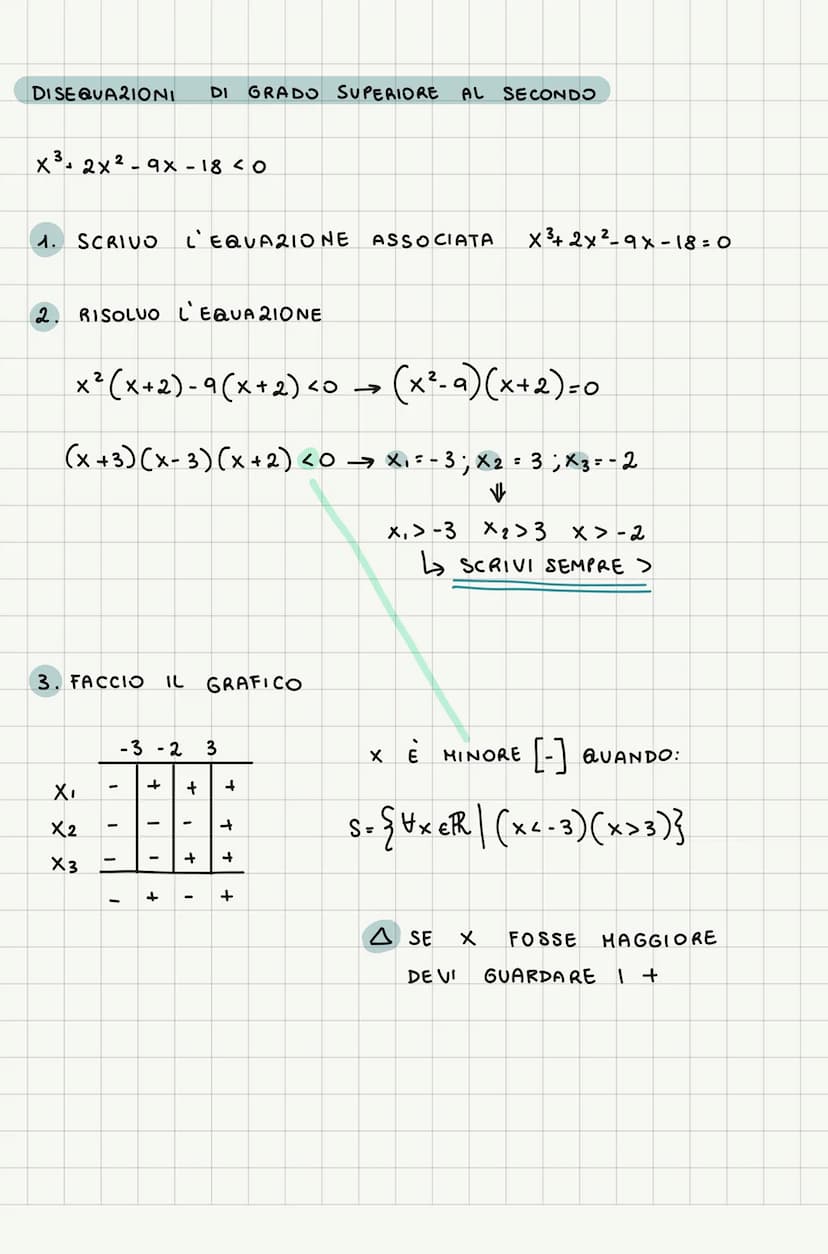 DISEQUAZIONI DI GRADO SUPERIORE AL SECONDO
x³+ 2x² - 9x - 18 < 0
1. SCRIVO L'EQUAZIONE ASSOCIATA x³+ 2x² - 9x - 18 = 0
2. RISOLVO L'EQUAZIONE
x²(x+2) - 9(x+2) < 0 → (x² - 9)(x+2) = 0
(x+3)(x-3)(x+2) < 0 → x₁ = -3 ; x₂ = 3 ; x₃ = -2
⇓
x₁ > -3 x₂ > 3 x > -2
↳ SCRIVI SEMPRE >
3. FACCIO IL GRAFICO
-3 -2 3
x₁ - + + +
x₂ - - - +
x₃ - - + +
- + - +
x È MINORE [-] QUANDO:
S = {∀x ∈ ℝ | (x < -3)(x > 3)}
△ SE X FOSSE MAGGIORE
DEVI GUARDARE I +